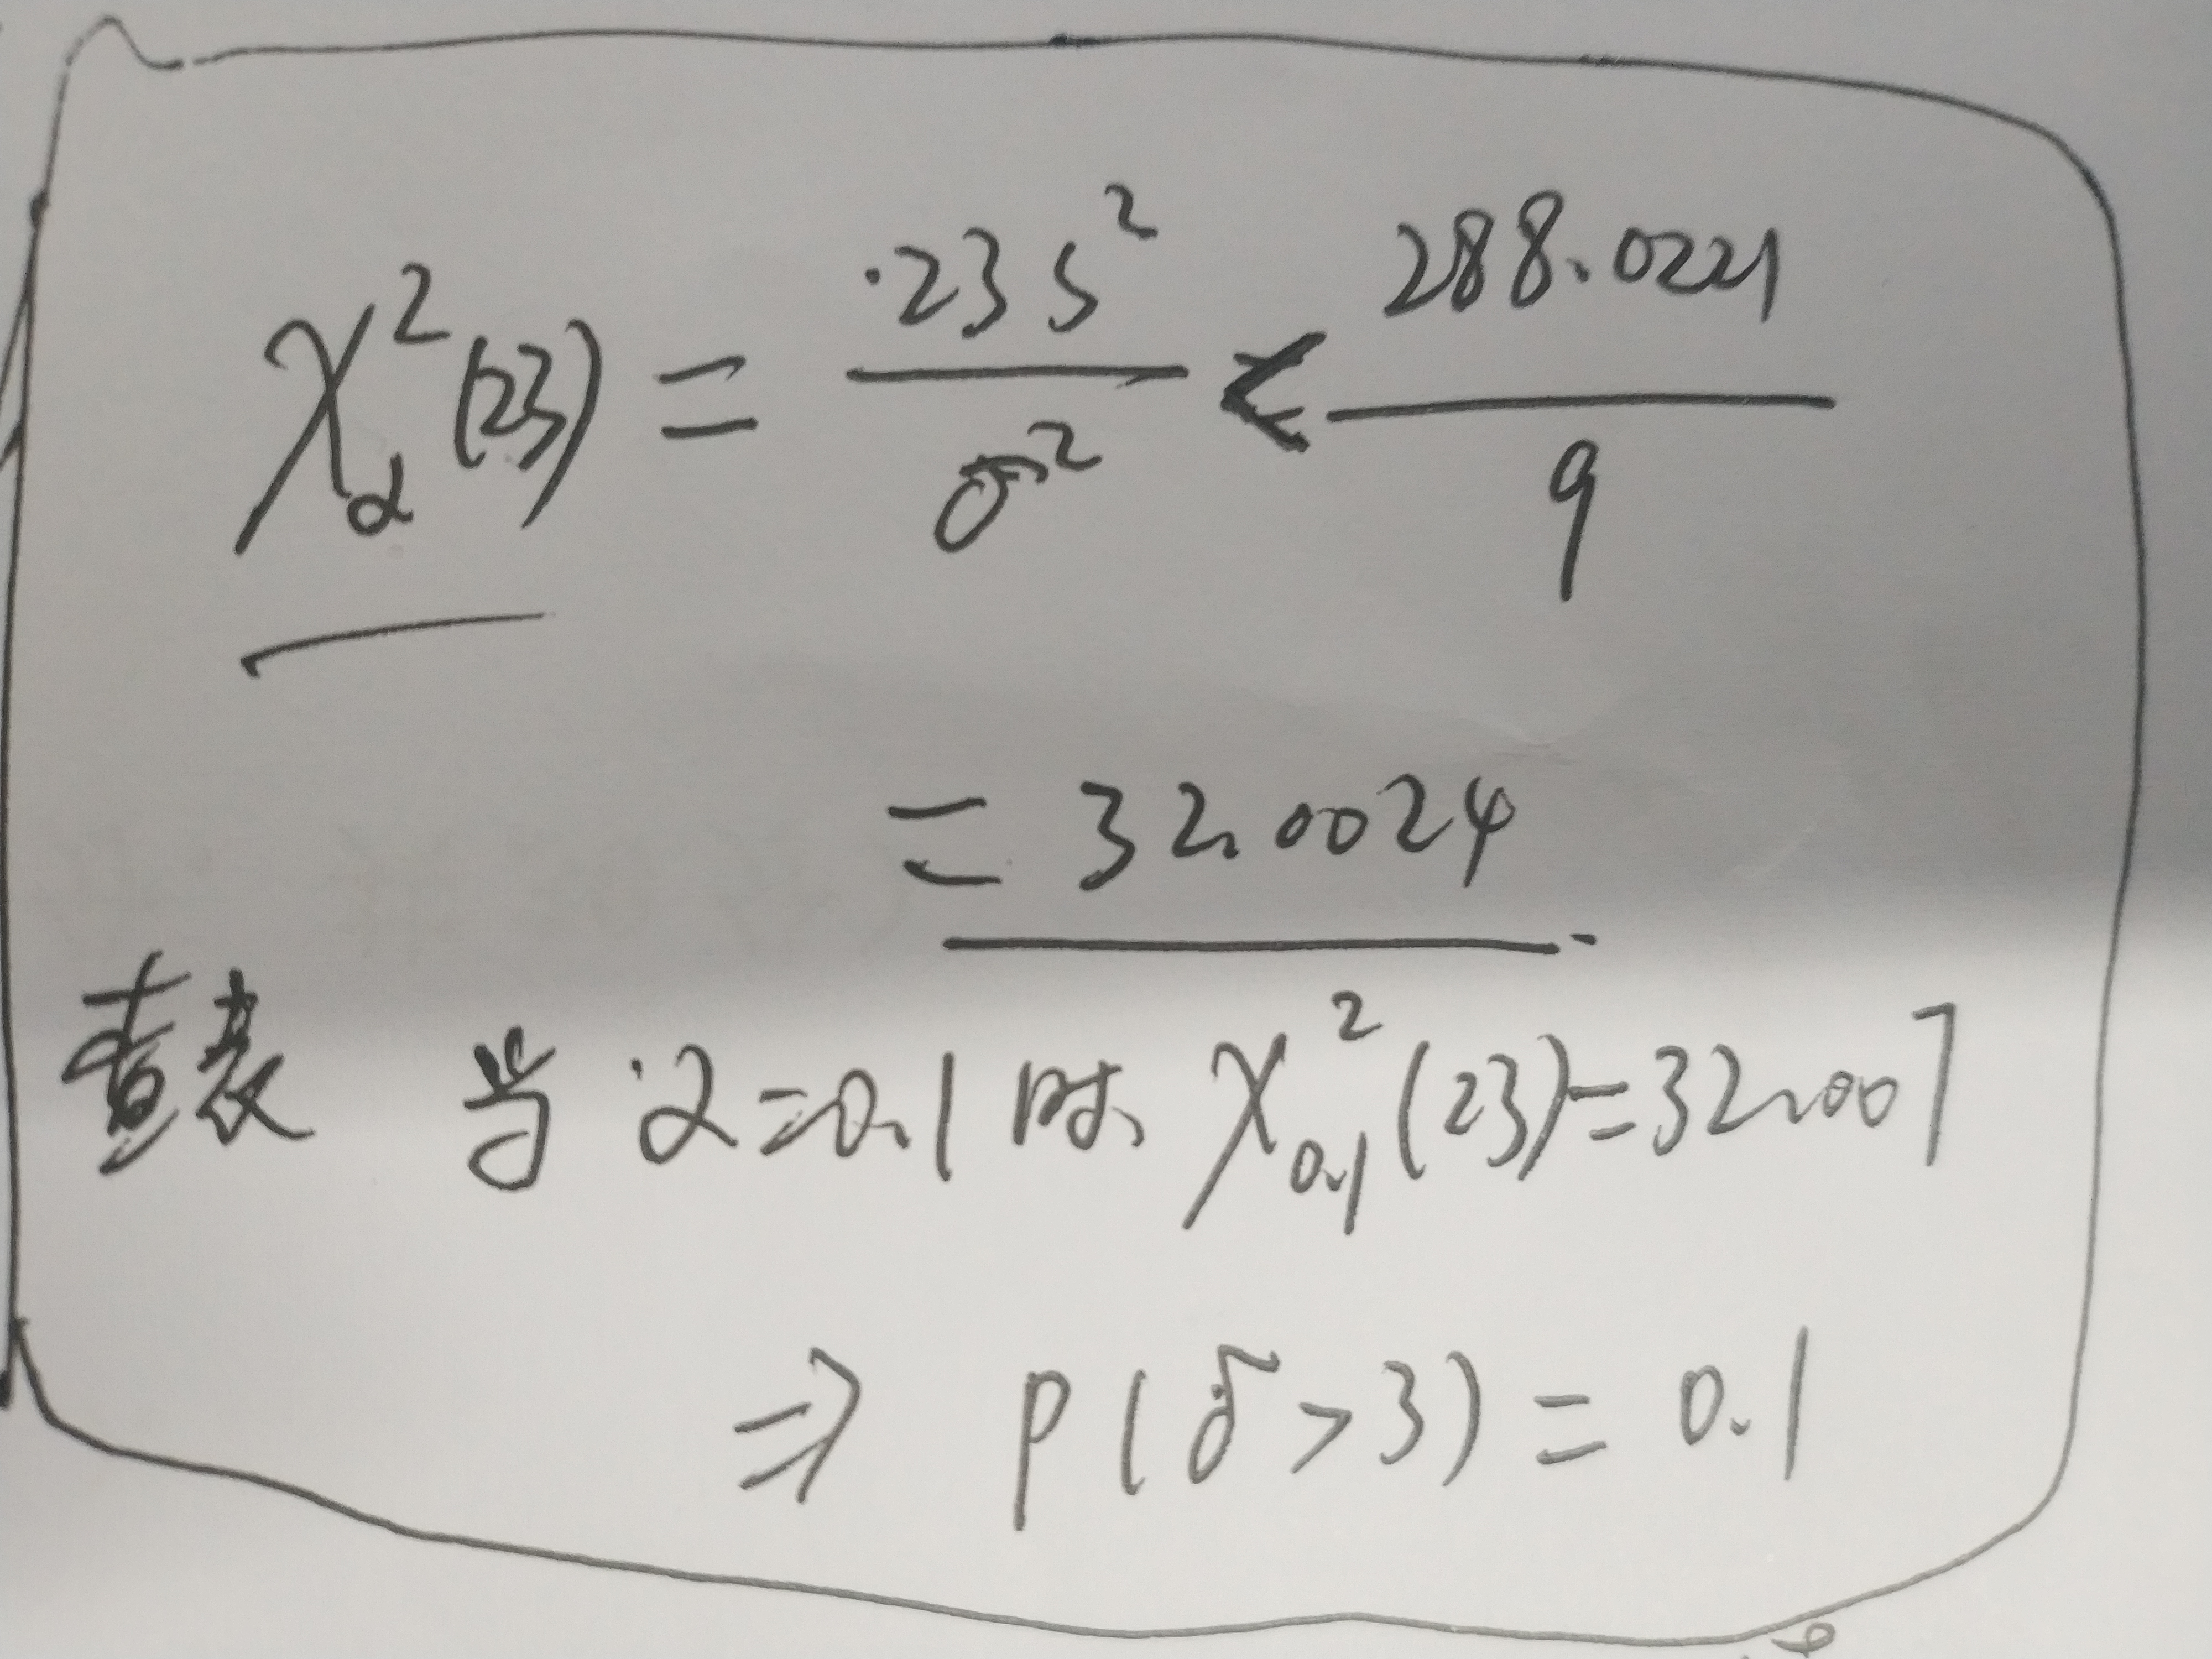 χ²_α(23) = 23s²/σ² < 288.0221/9
= 32.0024
查表 当 α=0.1时. χ²_0.1(23)=32.007
⇒ P(σ>3) = 0.1